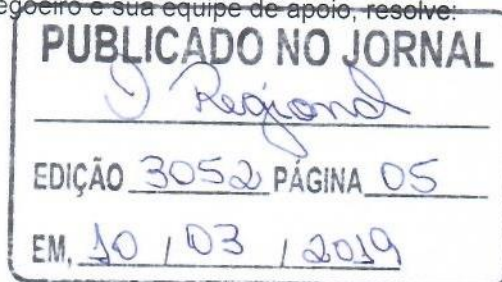 egoeiro e sua equipe de apoio, resolve:
PUBLICADO NO JORNAL
O Regional
EDIÇÃO 3052 PÁGINA 05
EM, 10 / 03 / 2019